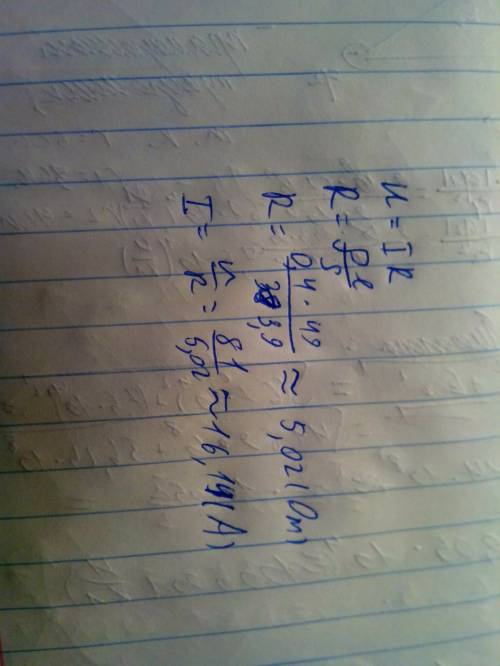 U = IR
R = ρl/S
R = 0,4 · 49 / 3,9 ≈ 5,02 (Ом)
I = U/R = 81/5,02 ≈ 16,14 (А)